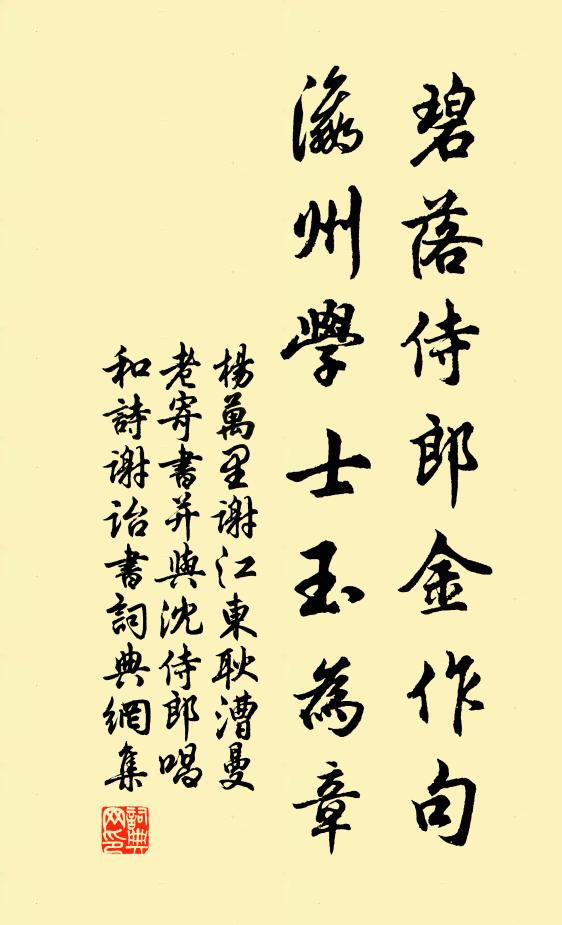 碧落侍郎金作句
瀛州學士玉為章
楊萬里謝江東耿漕曼
老寄書并與沈侍郎唱
和詩謝詒書詞典網集
詞典
网印